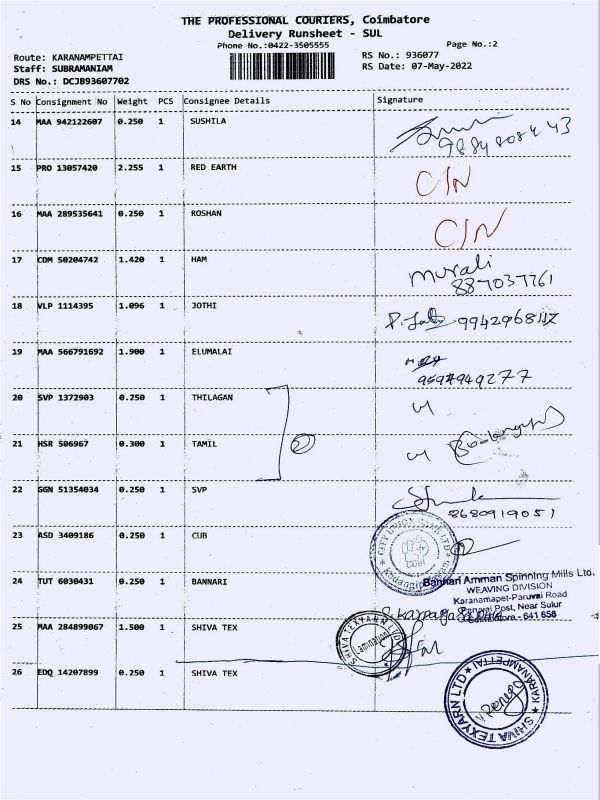 THE PROFESSIONAL COURIERS, Coimbatore
Delivery Runsheet - SUL
Phone No.:0422-3505555 Page No.:2
Route: KARANAMPETTAI RS No.: 936077
Staff: SUBRAMANIAM RS Date: 07-May-2022
DRS No.: DCJB93607702
S No Consignment No Weight PCS Consignee Details Signature
14 MAA 942122607 0.250 1 SUSHILA
9884808443
15 PRO 13057420 2.255 1 RED EARTH C/N
16 MAA 289535641 0.250 1 ROSHAN C/N
17 CDM 50204742 1.420 1 HAM Murali
8870377261
18 VLP 1114395 1.096 1 JOTHI
19 MAA 566791692 1.900 1 ELUMALAI
9697949277
20 SVP 1372903 0.250 1 THILAGAN
21 HSR 506967 0.300 1 TAMIL
22 GGN 51354034 0.250 1 SVP
8680919051
23 ASD 3409186 0.250 1 CUB
CITY UNION BANK LTD
24 TUT 6030431 0.250 1 BANNARI
Bannari Amman Spinning Mills Ltd.
WEAVING DIVISION
Karanamapet-Paruvai Road
Post, Near Sulur
Coimbatore - 641 658
25 MAA 284899067 1.500 1 SHIVA TEX
SHIVA TEXYARN LTD
Lamination
26 EDQ 14207899 0.250 1 SHIVA TEX
SHIVA TEXYARN LTD ★ KARANAMPETTAI ★